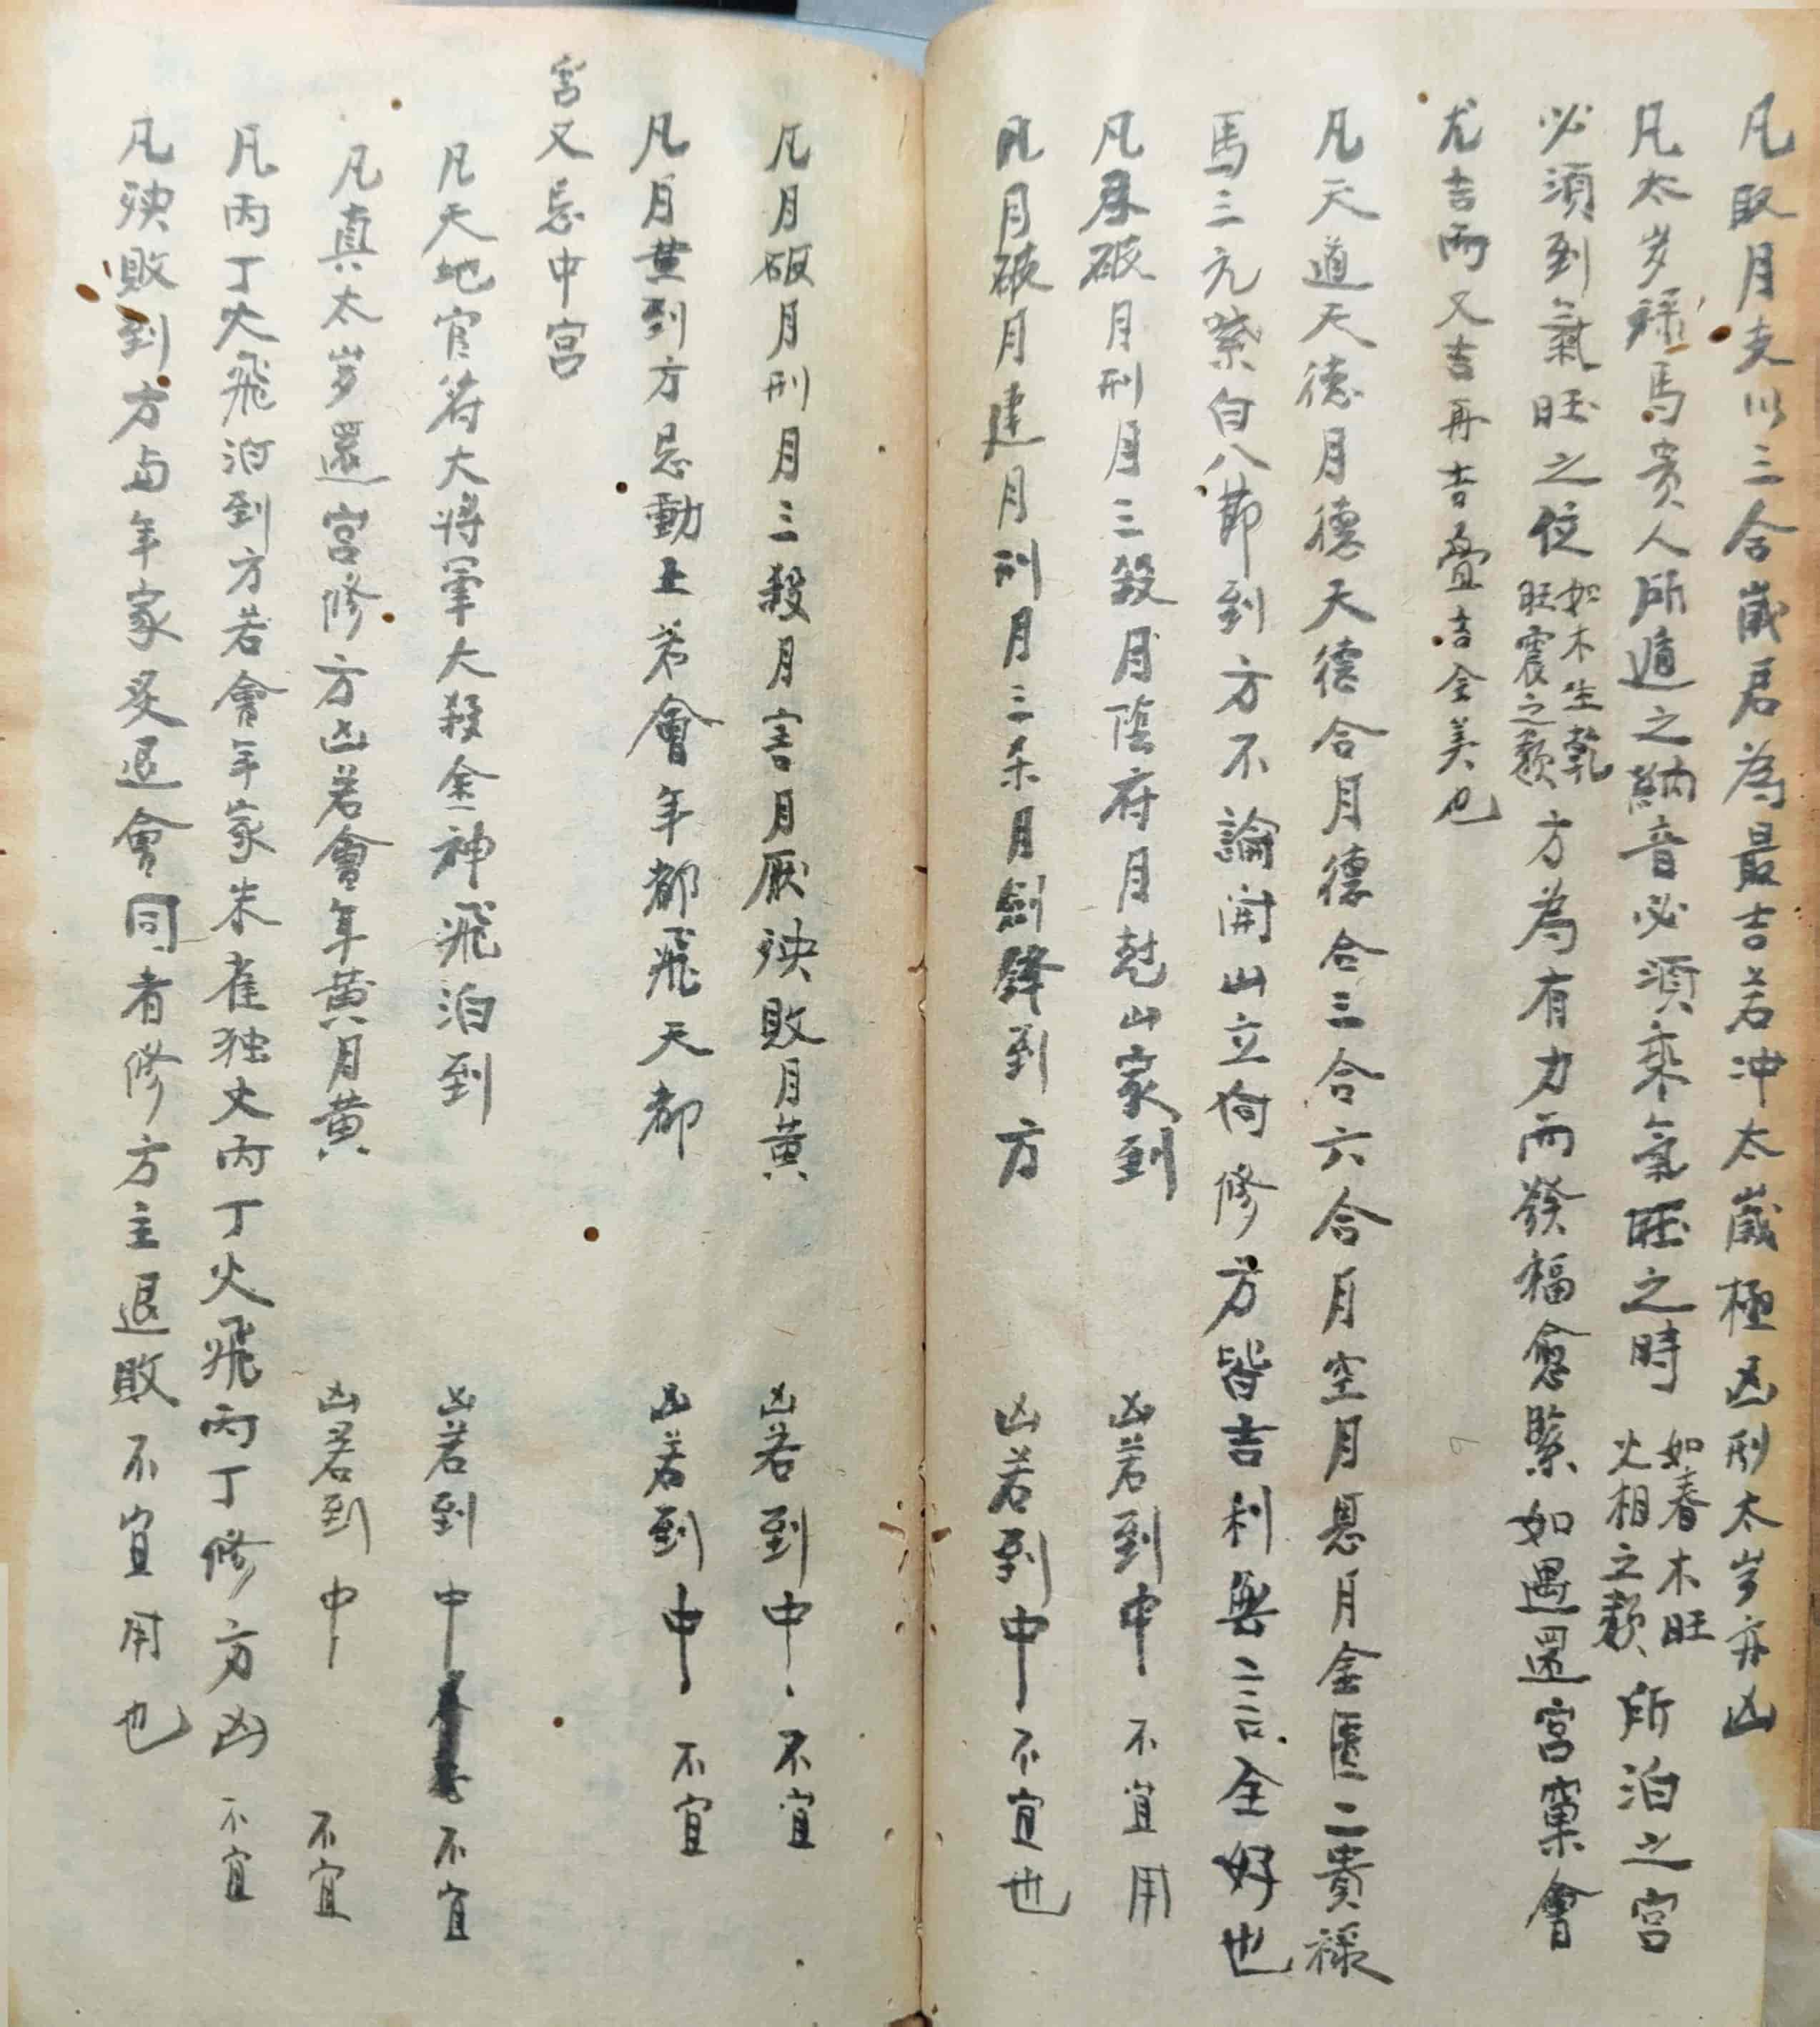 凡取月支以三合歲君為最吉若冲太歲極凶刑太岁亦凶
凡太岁祿馬貴人所遁之納音必須乘氣旺之時如春木旺火相之類所泊之宮
必須到氣旺之位如木生乾旺震之類方為有力而發福愈緊如遇還宮窠會
尤吉而又吉再吉疊吉全美也
凡天道天德月德天德合月德合三合六合月空月恩月金匱二貴祿
馬三元紫白八節到方不論開山立向修方皆吉利無二言全好也
凡月破月刑月三殺月陰府月尅山家到凶若到中不宜用
凡月破月建月刑月三杀月劍鋒到方凶若到中不宜也
凡月破月刑月三殺月害月厭殃敗月黄凶若到中不宜
凡月黄到方忌動土若會年都飛天都凶若到中不宜
宮又忌中宮
凡天地官符大將軍大殺金神飛泊到凶若到中不宜
凡真太岁還宮修方凶若會年黄月黄凶若到中不宜
凡丙丁火飛泊到方若會年家朱雀独火丙丁火飛丙丁修方凶不宜
凡殃敗到方与年家炙退會同者修方主退敗不宜用也